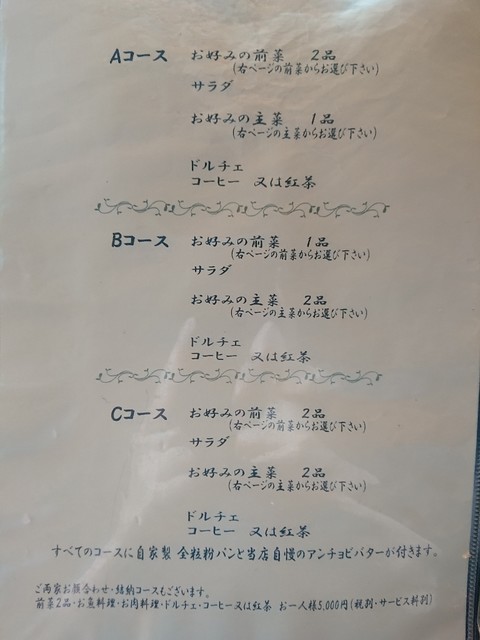 Aコース お好みの前菜 2品
(右ページの前菜からお選び下さい)
サラダ
お好みの主菜 1品
(右ページの主菜からお選び下さい)
ドルチェ
コーヒー 又は紅茶
Bコース お好みの前菜 1品
(右ページの前菜からお選び下さい)
サラダ
お好みの主菜 2品
(右ページの主菜からお選び下さい)
ドルチェ
コーヒー 又は紅茶
Cコース お好みの前菜 2品
(右ページの前菜からお選び下さい)
サラダ
お好みの主菜 2品
(右ページの主菜からお選び下さい)
ドルチェ
コーヒー 又は紅茶
すべてのコースに自家製 全粒粉パンと当店自慢のアンチョビバターが付きます。
ご両家お顔合わせ・結納コースもございます。
前菜2品・お魚料理・お肉料理・ドルチェ・コーヒー又は紅茶 お一人様5,000円(税別・サービス料別)